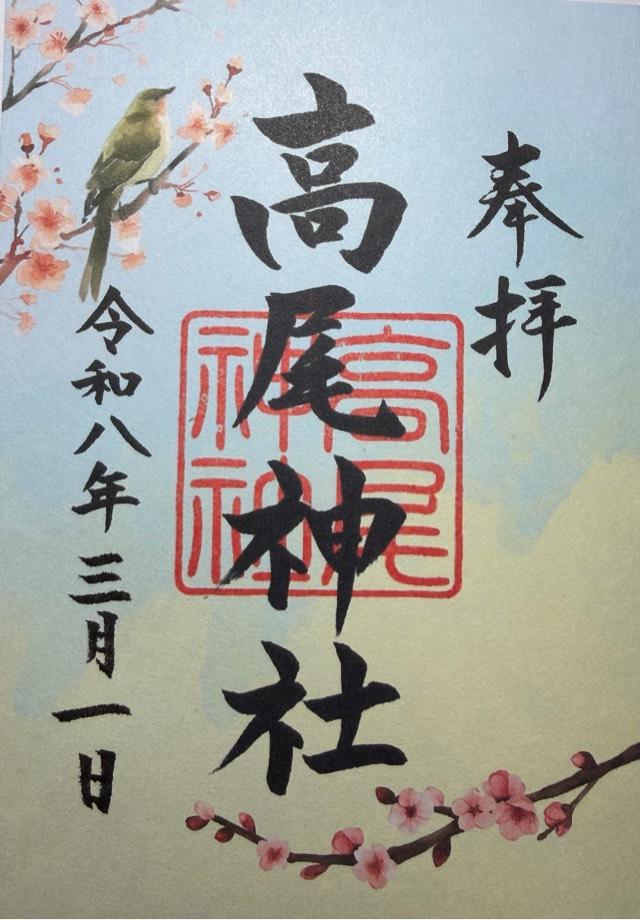 奉拝
高尾神社
高尾神社
令和八年三月一日